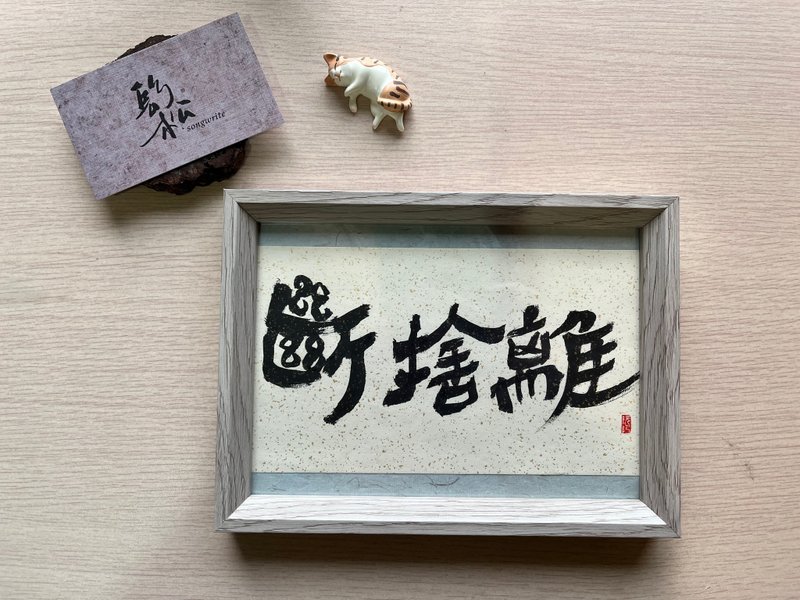 松
songwrite
斷捨離